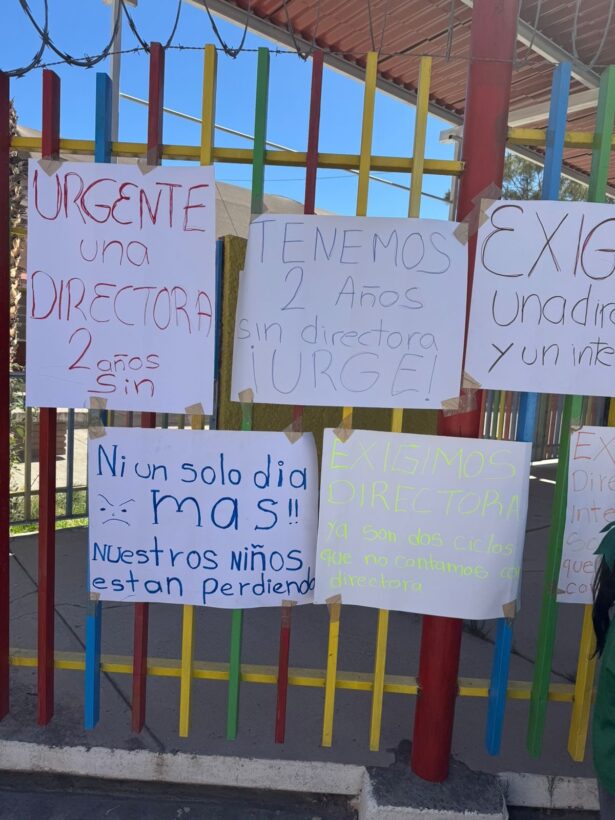 URGENTE
una
DIRECTORA
2 años
sin
TENEMOS
2 Años
sin directora
¡URGE!
EXIG
una dire
y un inte
Ni un solo dia
mas!!
NUestros NIÑos
estan perdiendo
EXIGIMOS
DIRECTORA
ya son dos ciclos
que no contamos co
directora
EX
Dire
Inte
que
co